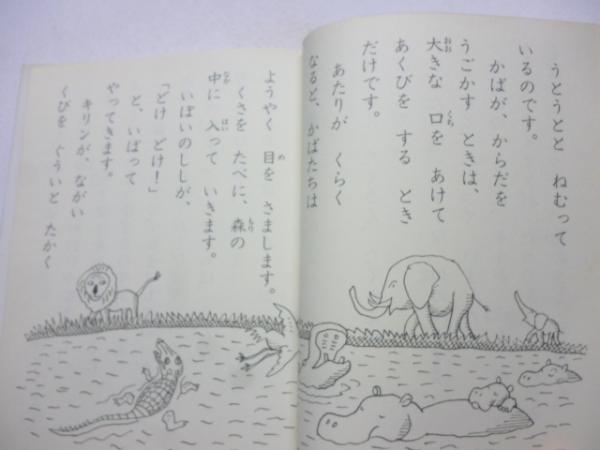 うとうとと ねむって
いるのです。
かばが、からだを
うごかす ときは、
大きな 口を あけて
あくびを する とき
だけです。
あたりが くらく
なると、かばたちは
ようやく 目を さまします。
くさを たべに、森の
中に 入って いきます。
いぼいのししが、
「どけ どけ!」
と、いばって
やってきます。
キリンが、ながい
くびを ぐういと たかく